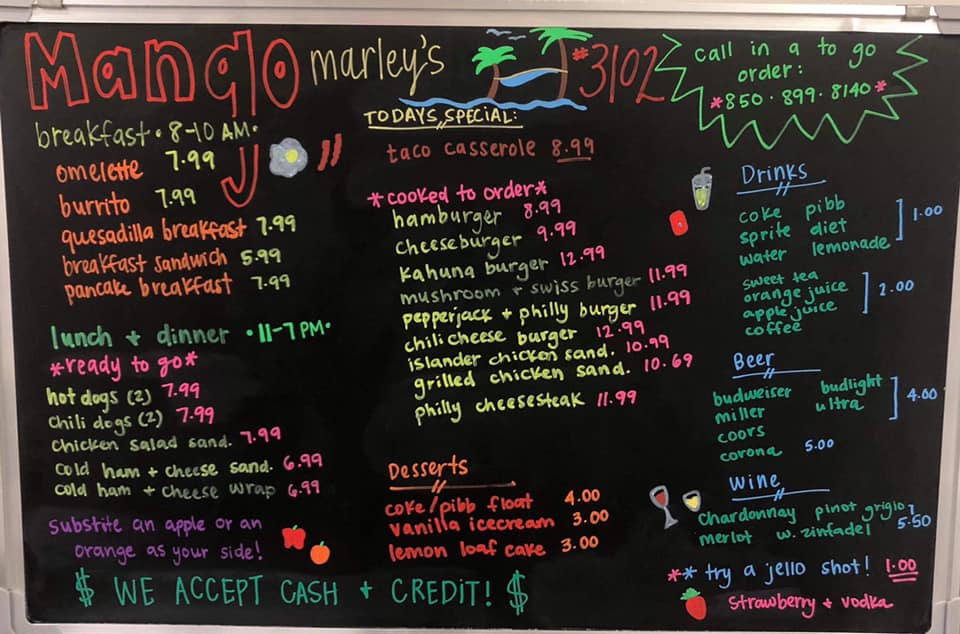 Mango marley's #3102
call in a to go
order:
*850·899·8140*
breakfast·8-10 AM·
omelette 7.99
burrito 7.99
quesadilla breakfast 7.99
breakfast sandwich 5.99
pancake breakfast 7.99
lunch + dinner ·11-7 PM·
*ready to go*
hot dogs (2) 7.99
Chili dogs (2) 7.99
Chicken Salad sand. 7.99
Cold ham + cheese sand. 6.99
cold ham + cheese wrap 6.99
Substite an apple or an
orange as your side!
TODAYS SPECIAL:
taco casserole 8.99
*cooked to order*
hamburger 8.99
cheeseburger 9.99
Kahuna burger 12.99
mushroom + swiss burger 11.99
pepperjack + philly burger 11.99
chili cheese burger 12.99
islander chicken sand. 10.99
grilled chicken sand. 10.69
philly cheesesteak 11.99
Desserts
coke/pibb float 4.00
vanilla icecream 3.00
lemon loaf cake 3.00
Drinks
coke pibb
sprite diet 1.00
water lemonade
sweet tea
orange juice 2.00
apple juice
coffee
Beer
budweiser budlight
miller ultra 4.00
coors
corona 5.00
Wine
Chardonnay pinot grigio
merlot w. zinfadel 5.50
** try a jello shot! 1.00
strawberry + vodka
$ WE ACCEPT CASH + CREDIT! $